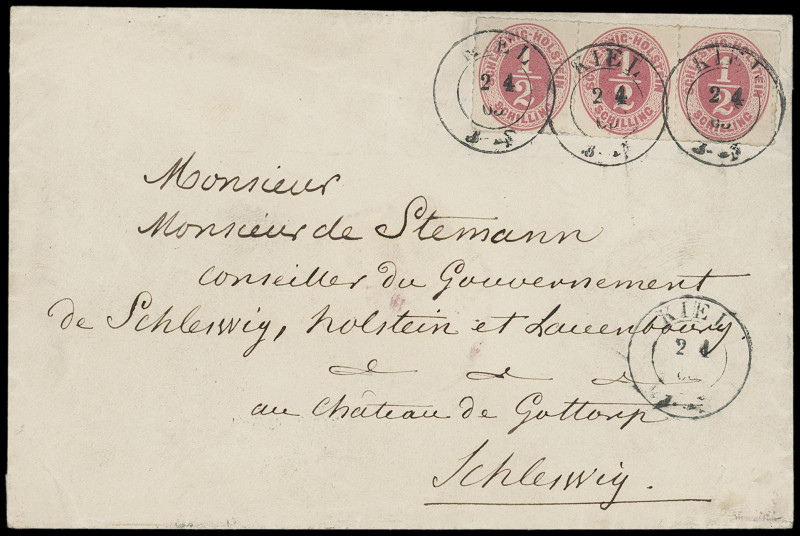 SCHLESWIG-HOLSTEIN 1/2 SCHILLING
SCHLESWIG-HOLSTEIN 1/2 SCHILLING
SCHLESWIG-HOLSTEIN 1/2 SCHILLING
KIEL
2 4
KIEL
2 4
KIEL
2 4
65
Monsieur
Monsieur de Stemann
conseiller du Gouvernement
de Schleswig, Holstein et Lauenbourg.
KIEL
2 4
au Château de Gottorp
Schleswig.